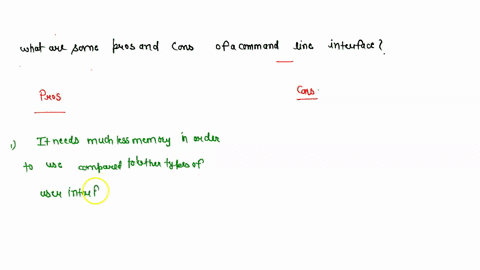 what are some pros and cons of a command line interface?
Pros
Cons.
1) It needs much less memory in order
to use compared to other types of
user interf